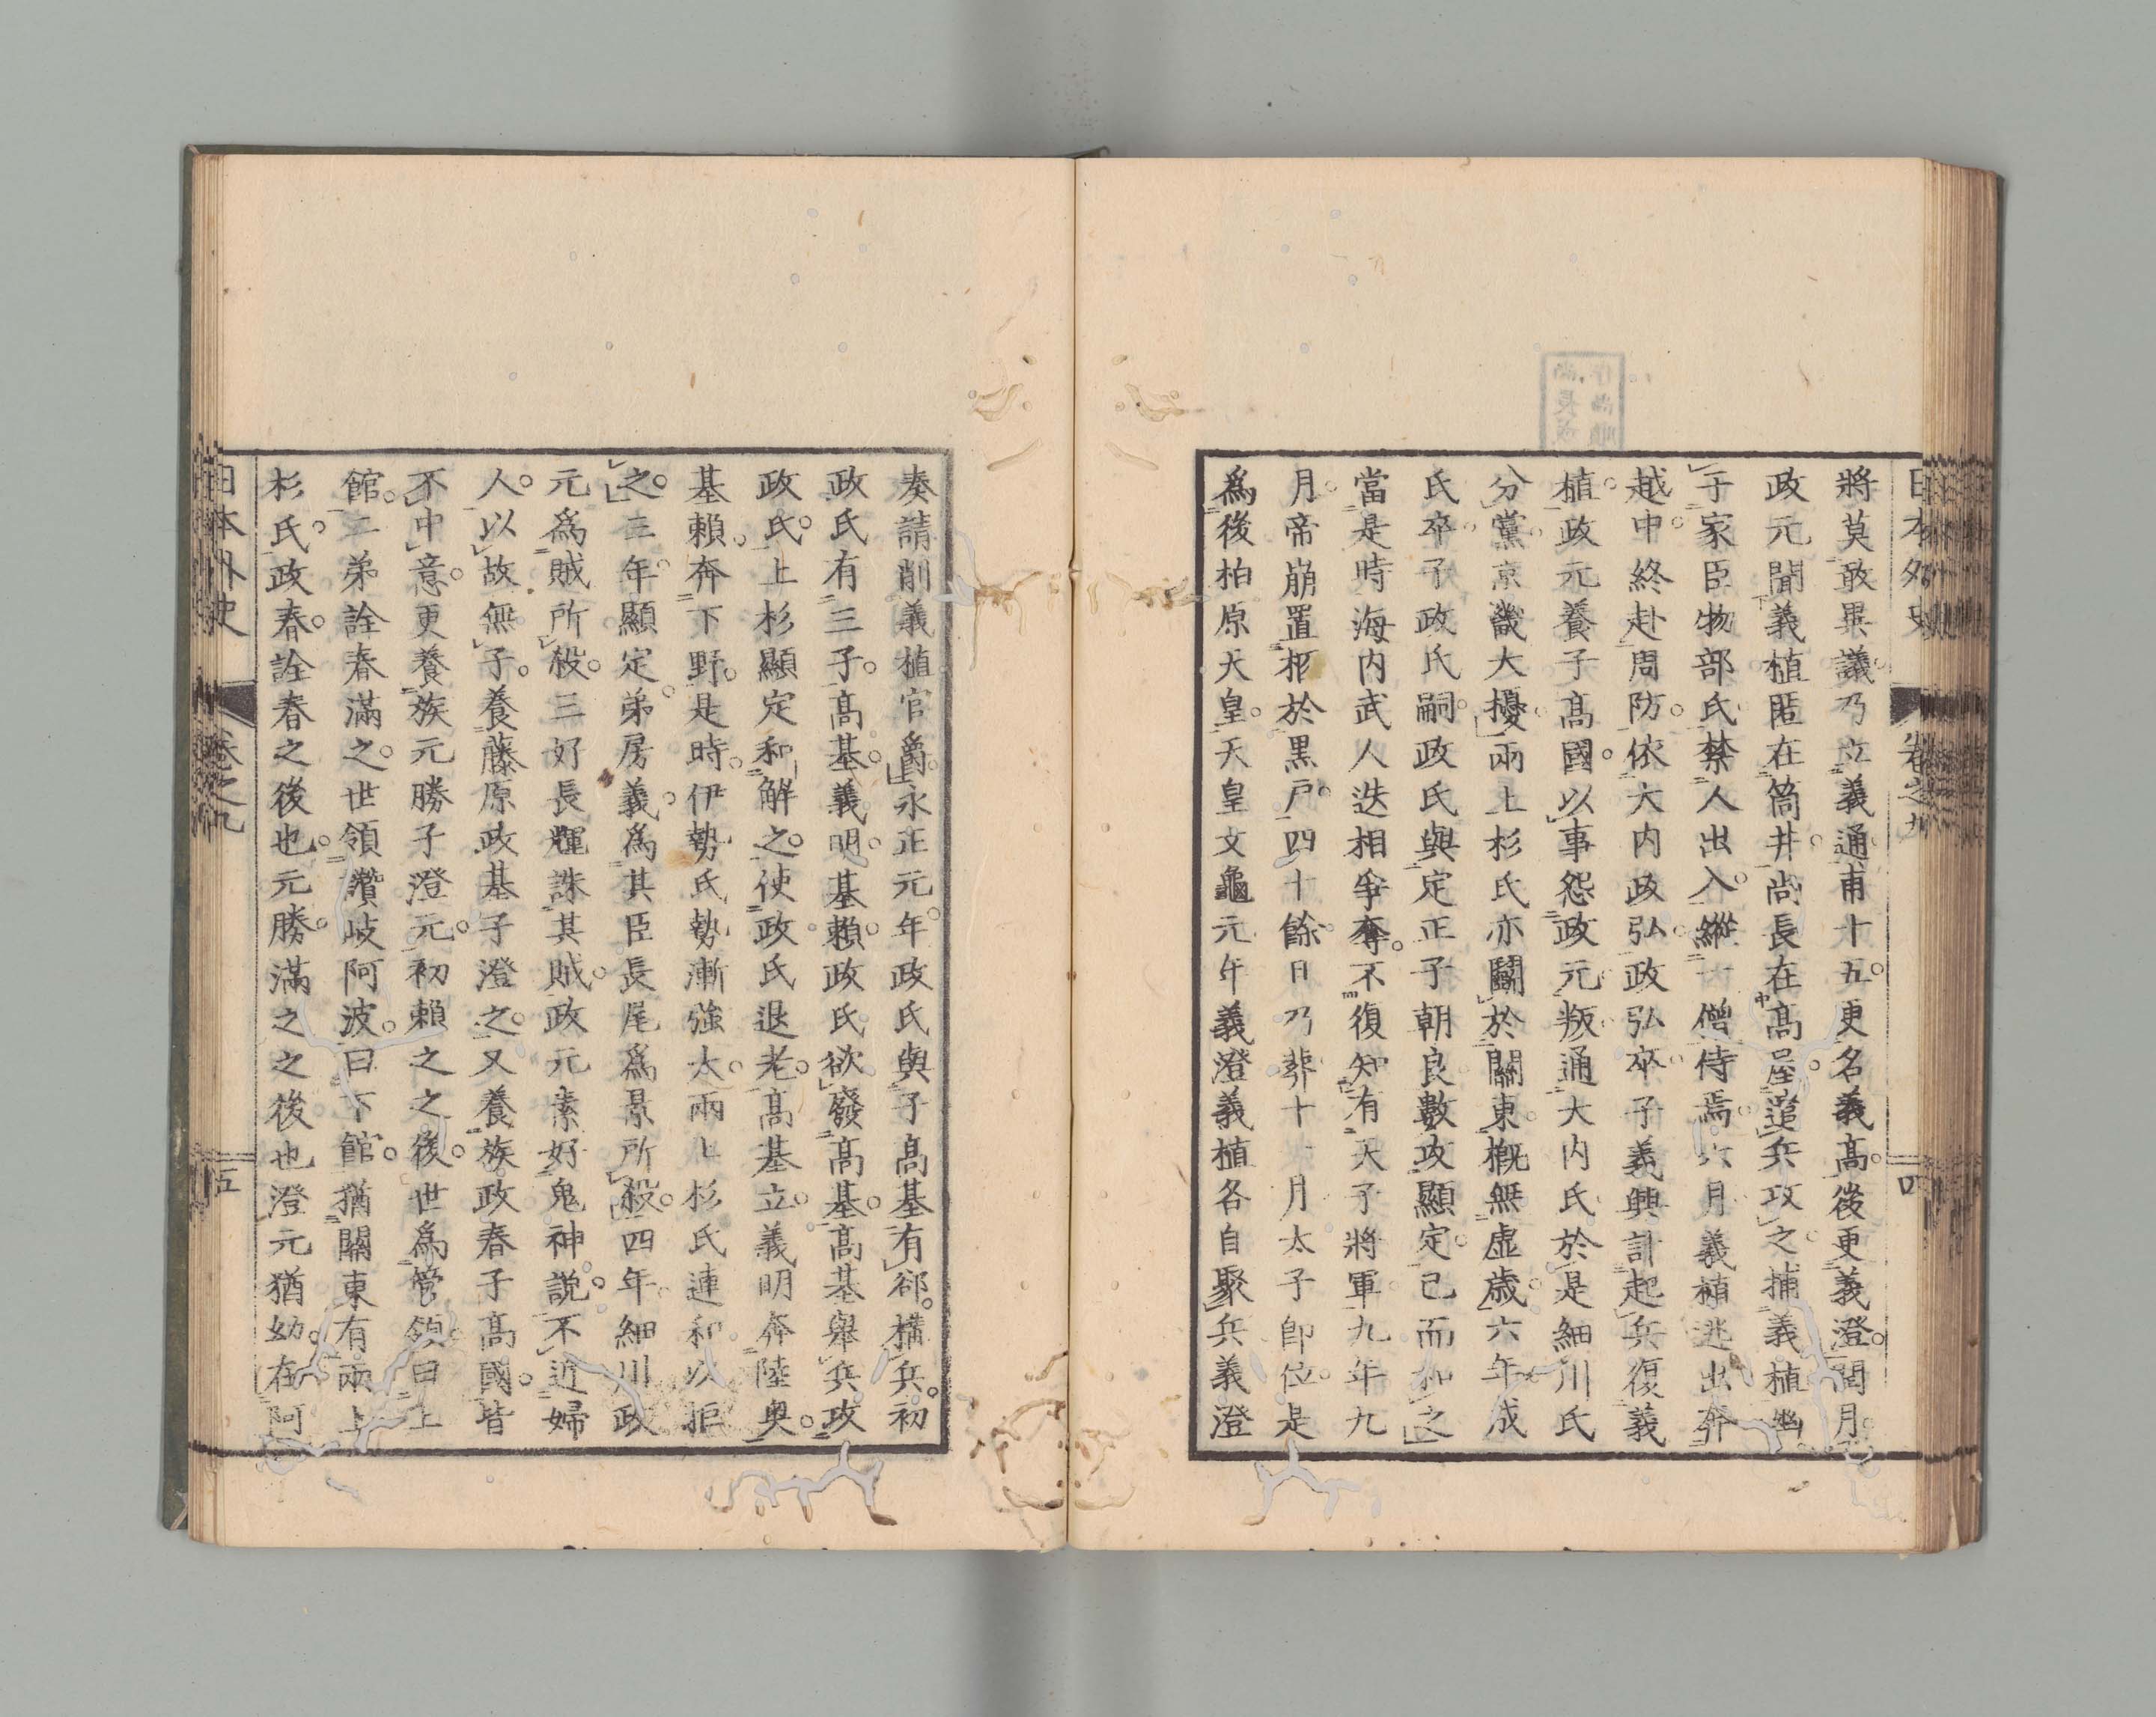 日本外史 卷之九 四
將莫敢異議乃立義通甫十五更名義高後更義澄閏月
政元聞義植匿在筒井尚長在高屋遣兵攻之捕義植幽
于家臣物部氏禁人出入縱一僧侍焉六月義植逃出奔
越中終赴周防依大内政弘政弘卒子義興計起兵復義
植政元養子高國以事怨政元叛通大内氏於是細川氏
分黨京畿大擾兩上杉氏亦鬭於關東概無虚歳六年成
氏卒子政氏嗣政氏與定正子朝良數攻顯定已而和之
當是時海内武人迭相爭奪不復知有天子將軍九年九
月帝崩置柩於黒戸四十餘日乃葬十一月太子即位是
爲後柏原天皇天皇文龜元年義澄義植各自聚兵義澄
奏請削義植官爵永正元年政氏與子高基有郤構兵初
政氏有三子高基義明基賴政氏欲廢高基高基舉兵攻
政氏上杉顯定和解之使政氏退老高基立義明奔陸奥
基賴奔下野是時伊勢氏勢漸強大兩上杉氏連和以拒
之三年顯定弟房義爲其臣長尾爲景所殺四年細川政
元爲賊所殺三好長輝誅其賊政元素好鬼神説不近婦
人以故無子養藤原政基子澄之又養族政春子高國皆
不中意更養族元勝子澄元初賴之之後世爲管領曰上
館二弟詮春滿之世領讚岐阿波曰下館猶關東有兩上
杉氏政春詮春之後也元勝滿之之後也澄元猶幼在阿
日本外史 卷之九 五